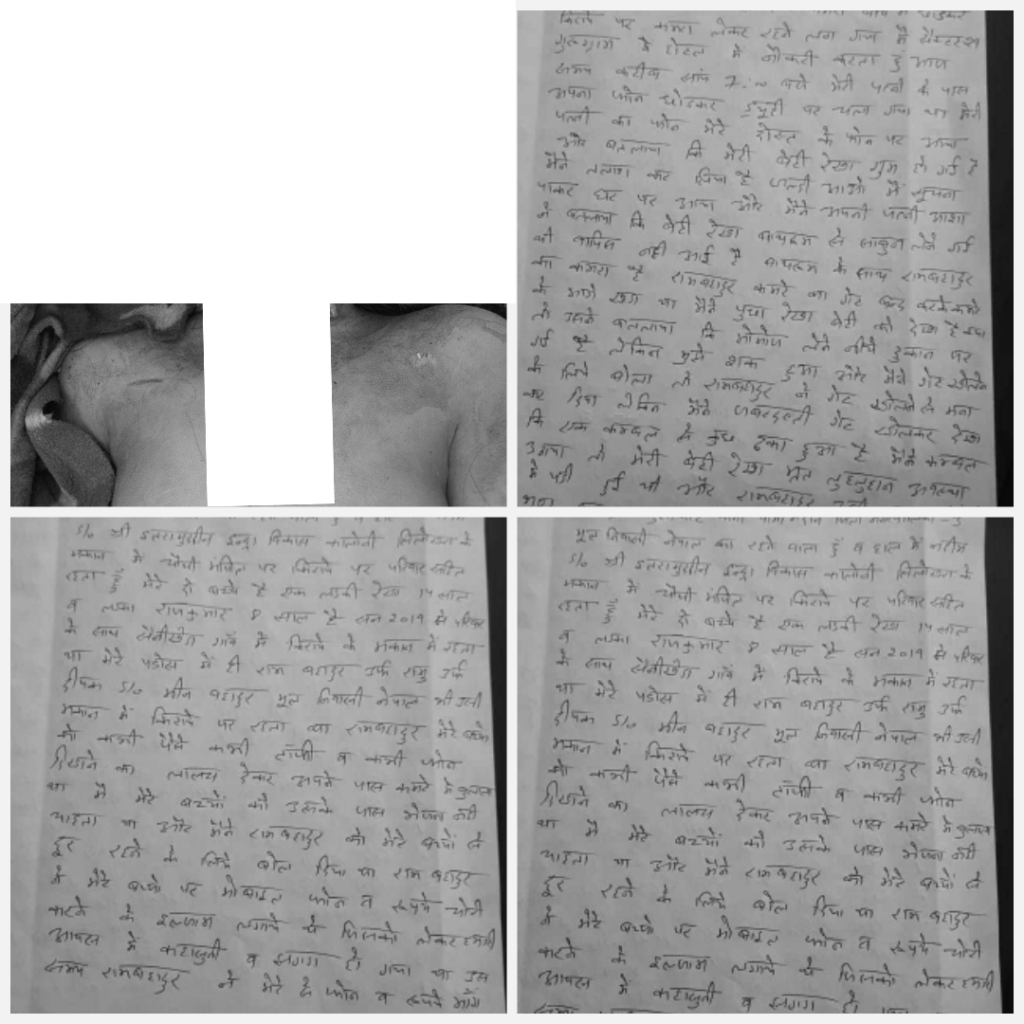 किराये पर कमरा लेकर रहने लग गया मै
गुरूग्राम मे होटल मे नौकरी करता हुं आज
समय करीब सांय 7:00 बजे मेरी पत्नी के पास
अपना फोन छोडकर ड्युटी पर चला गया था मेरी
पत्नी का फोन मेरे दोस्त के फोन पर आया
और बतलाया कि मेरी बेटी रेखा गुम हो गई है
मैने तलाश कर लिया है जल्दी आओ मै सूचना
पाकर घर पर आया और मैने अपनी पत्नी आशा
ने बतलाया कि बेटी रेखा बाथरूम से साबुन लेने गई
थी वापिस नही आई है बाथरूम के साथ रामबहादुर
का कमरा है रामबहादुर कमरे का गेट बन्द करके कमरे
के आगे खडा था मैने पुछा रेखा बेटी को देखा है क्या
तो उसने बतलाया कि मोमोज लेने नीचे दुकान पर
गई है लेकिन मुझे शक हुआ और मैने गेट खोलने
के लिये बोला तो रामबहादुर ने गेट खोलने से मना
कर दिया लेकिन मैने जबरदस्ती गेट खोलकर देखा
कि एक कम्बल से कुछ ढका हुआ है मैने कम्बल
उठाया तो मेरी बेटी रेखा मृत लुहलुहान अवस्था
मे पडी हुई थी और रामबहादुर
S/o श्री इन्द्रा विकास कालोनी
मकान मे चौथी मंजिल पर किराये पर परिवार सहीत
रहता हुँ मेरे दो बच्चे है एक लडकी रेखा 14 साल
व लडका राजकुमार 8 साल है सन 2019 से परिवार
के साथ गांव मे किराये के मकान मे रहता
था मेरे पडोस मे ही राम बहादुर उर्फ राजु उर्फ
दीपक S/o मीन बहादुर मूल निवासी नेपाल भी उसी
मकान मे किराये पर रहता था रामबहादुर मेरे बच्चो
को कभी पैसे कभी टॉफी व कभी फोन
दिखाने का लालच देकर अपने पास कमरे मे बुलाता
था मै मेरे बच्चों को उसके पास भेजना नही
चाहता था और मैने रामबहादुर को मेरे बच्चों से
दूर रहने के लिये बोल दिया था राम बहादुर
ने मेरे बच्चो पर मोबाइल फोन व रूपये चोरी
करने के इल्जाम लगाये थे जिसको लेकर हमारी
आपस मे कहासुनी व झगडा हो गया था उस
समय रामबहादुर ने मेरे से फोन व रूपये मांग
मूल निवासी नेपाल का रहने वाला हुँ व हाल मे
S/o श्री इन्द्रा विकास कालोनी
मकान मे चौथी मंजिल पर किराये पर परिवार सहीत
रहता हुँ मेरे दो बच्चे है एक लडकी रेखा 14 साल
व लडका राजकुमार 8 साल है सन 2019 से परिवार
के साथ गांव मे किराये के मकान मे रहता
था मेरे पडोस मे ही राम बहादुर उर्फ राजु उर्फ
दीपक S/o मीन बहादुर मूल निवासी नेपाल भी उसी
मकान मे किराये पर रहता था रामबहादुर मेरे बच्चो
को कभी पैसे कभी टॉफी व कभी फोन
दिखाने का लालच देकर अपने पास कमरे मे बुलाता
था मै मेरे बच्चों को उसके पास भेजना नही
चाहता था और मैने रामबहादुर को मेरे बच्चों से
दूर रहने के लिये बोल दिया था राम बहादुर
ने मेरे बच्चो पर मोबाइल फोन व रूपये चोरी
करने के इल्जाम लगाये थे जिसको लेकर हमारी
आपस मे कहासुनी व झगडा हो गया